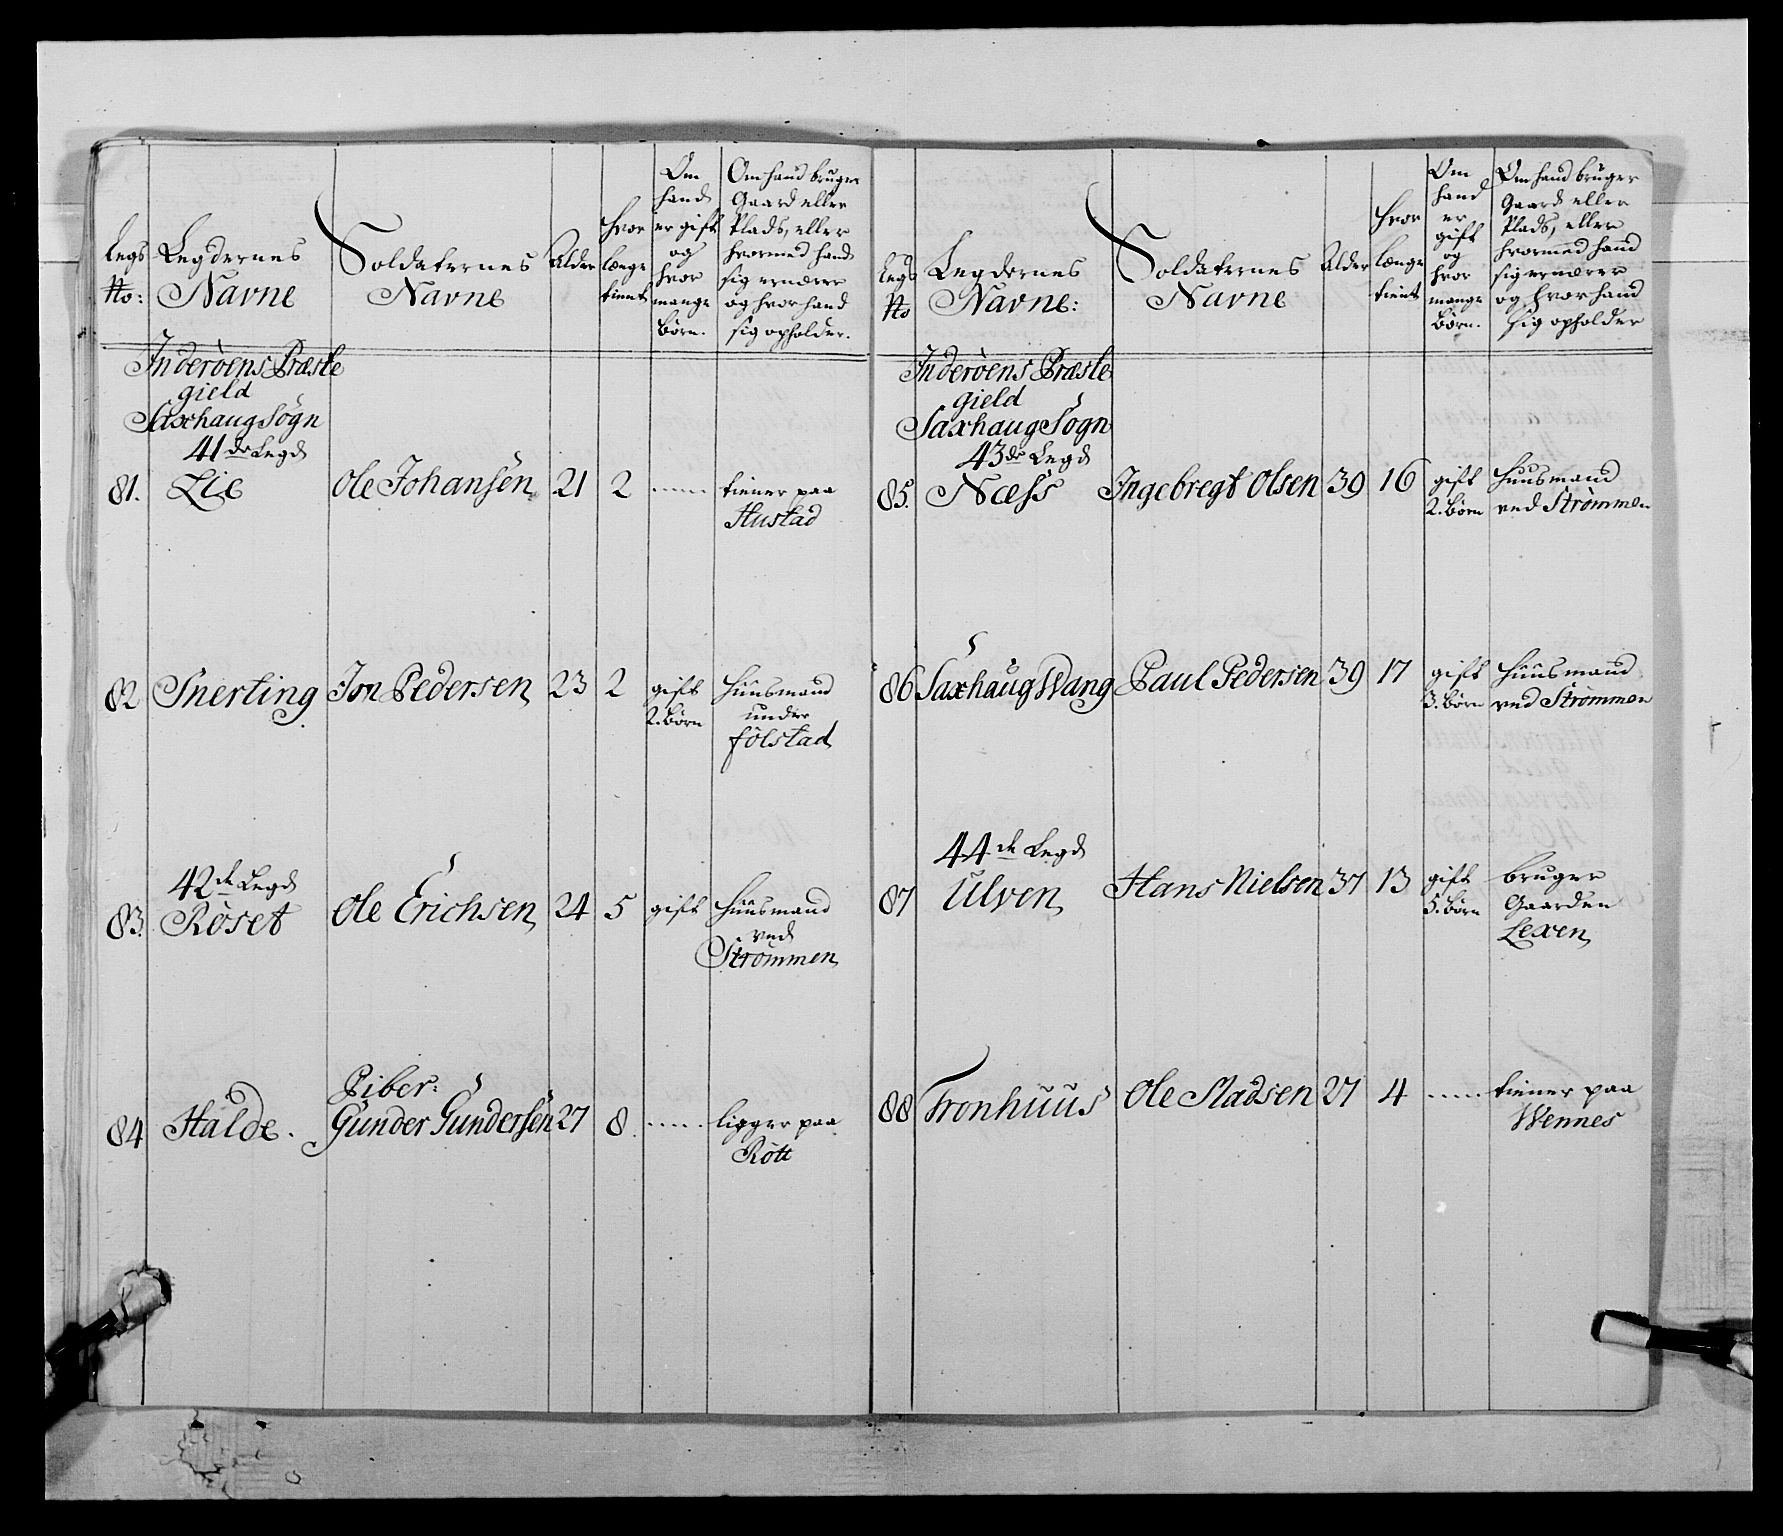 Legs No:
Legdernes Navne
Soldaternes Navne
Alder
hvor længe tient
Om hand er gift og hvor mange Børn.
Om hand bruger Gaard eller Plads, eller hvormed hand sig ernærer og hvor hand sig opholder.
Inderöens Præste
gield
Saxhaug Sögn
41de Legd
81. Lie Ole Johansen 21 2 ...... tiener paa
Hustad
82 Snerting Jon Pedersen 23 2 gift Huusmand
2. Börn under
Fölstad
42de Legd
83. Röset Ole Erichsen 24 5 gift Huusmand
ved
Strömmen
Piber:
84 Halde. Gunder Gundersen 27 8 ...... ligger paa
Rött
Legs No
Legdernes Navne:
Soldaternes Navne
Alder
hvor længe tient
Om hand er gift og hvor mange Börn.
Om hand bruger Gaard eller Plads, eller hvormed hand sig ernærer og hvor hand sig opholder
Inderöens Præste
gield
Saxhaug Sogn
43de Legd
85. Næss Ingebregt Olsen 39 16 gift Huusmand
2. Börn ved Strömmen
86 Saxhaug Wang Paul Pedersen 39 17 gift Huusmand
3. Börn ved Strömmen
44de Legd
87 Ulven Hans Nielsen 37 13 gift bruger
5. Börn Gaarden
Lexen
88 Tronhuus Ole Madsen 27 4 ...... tiener paa
Wennes